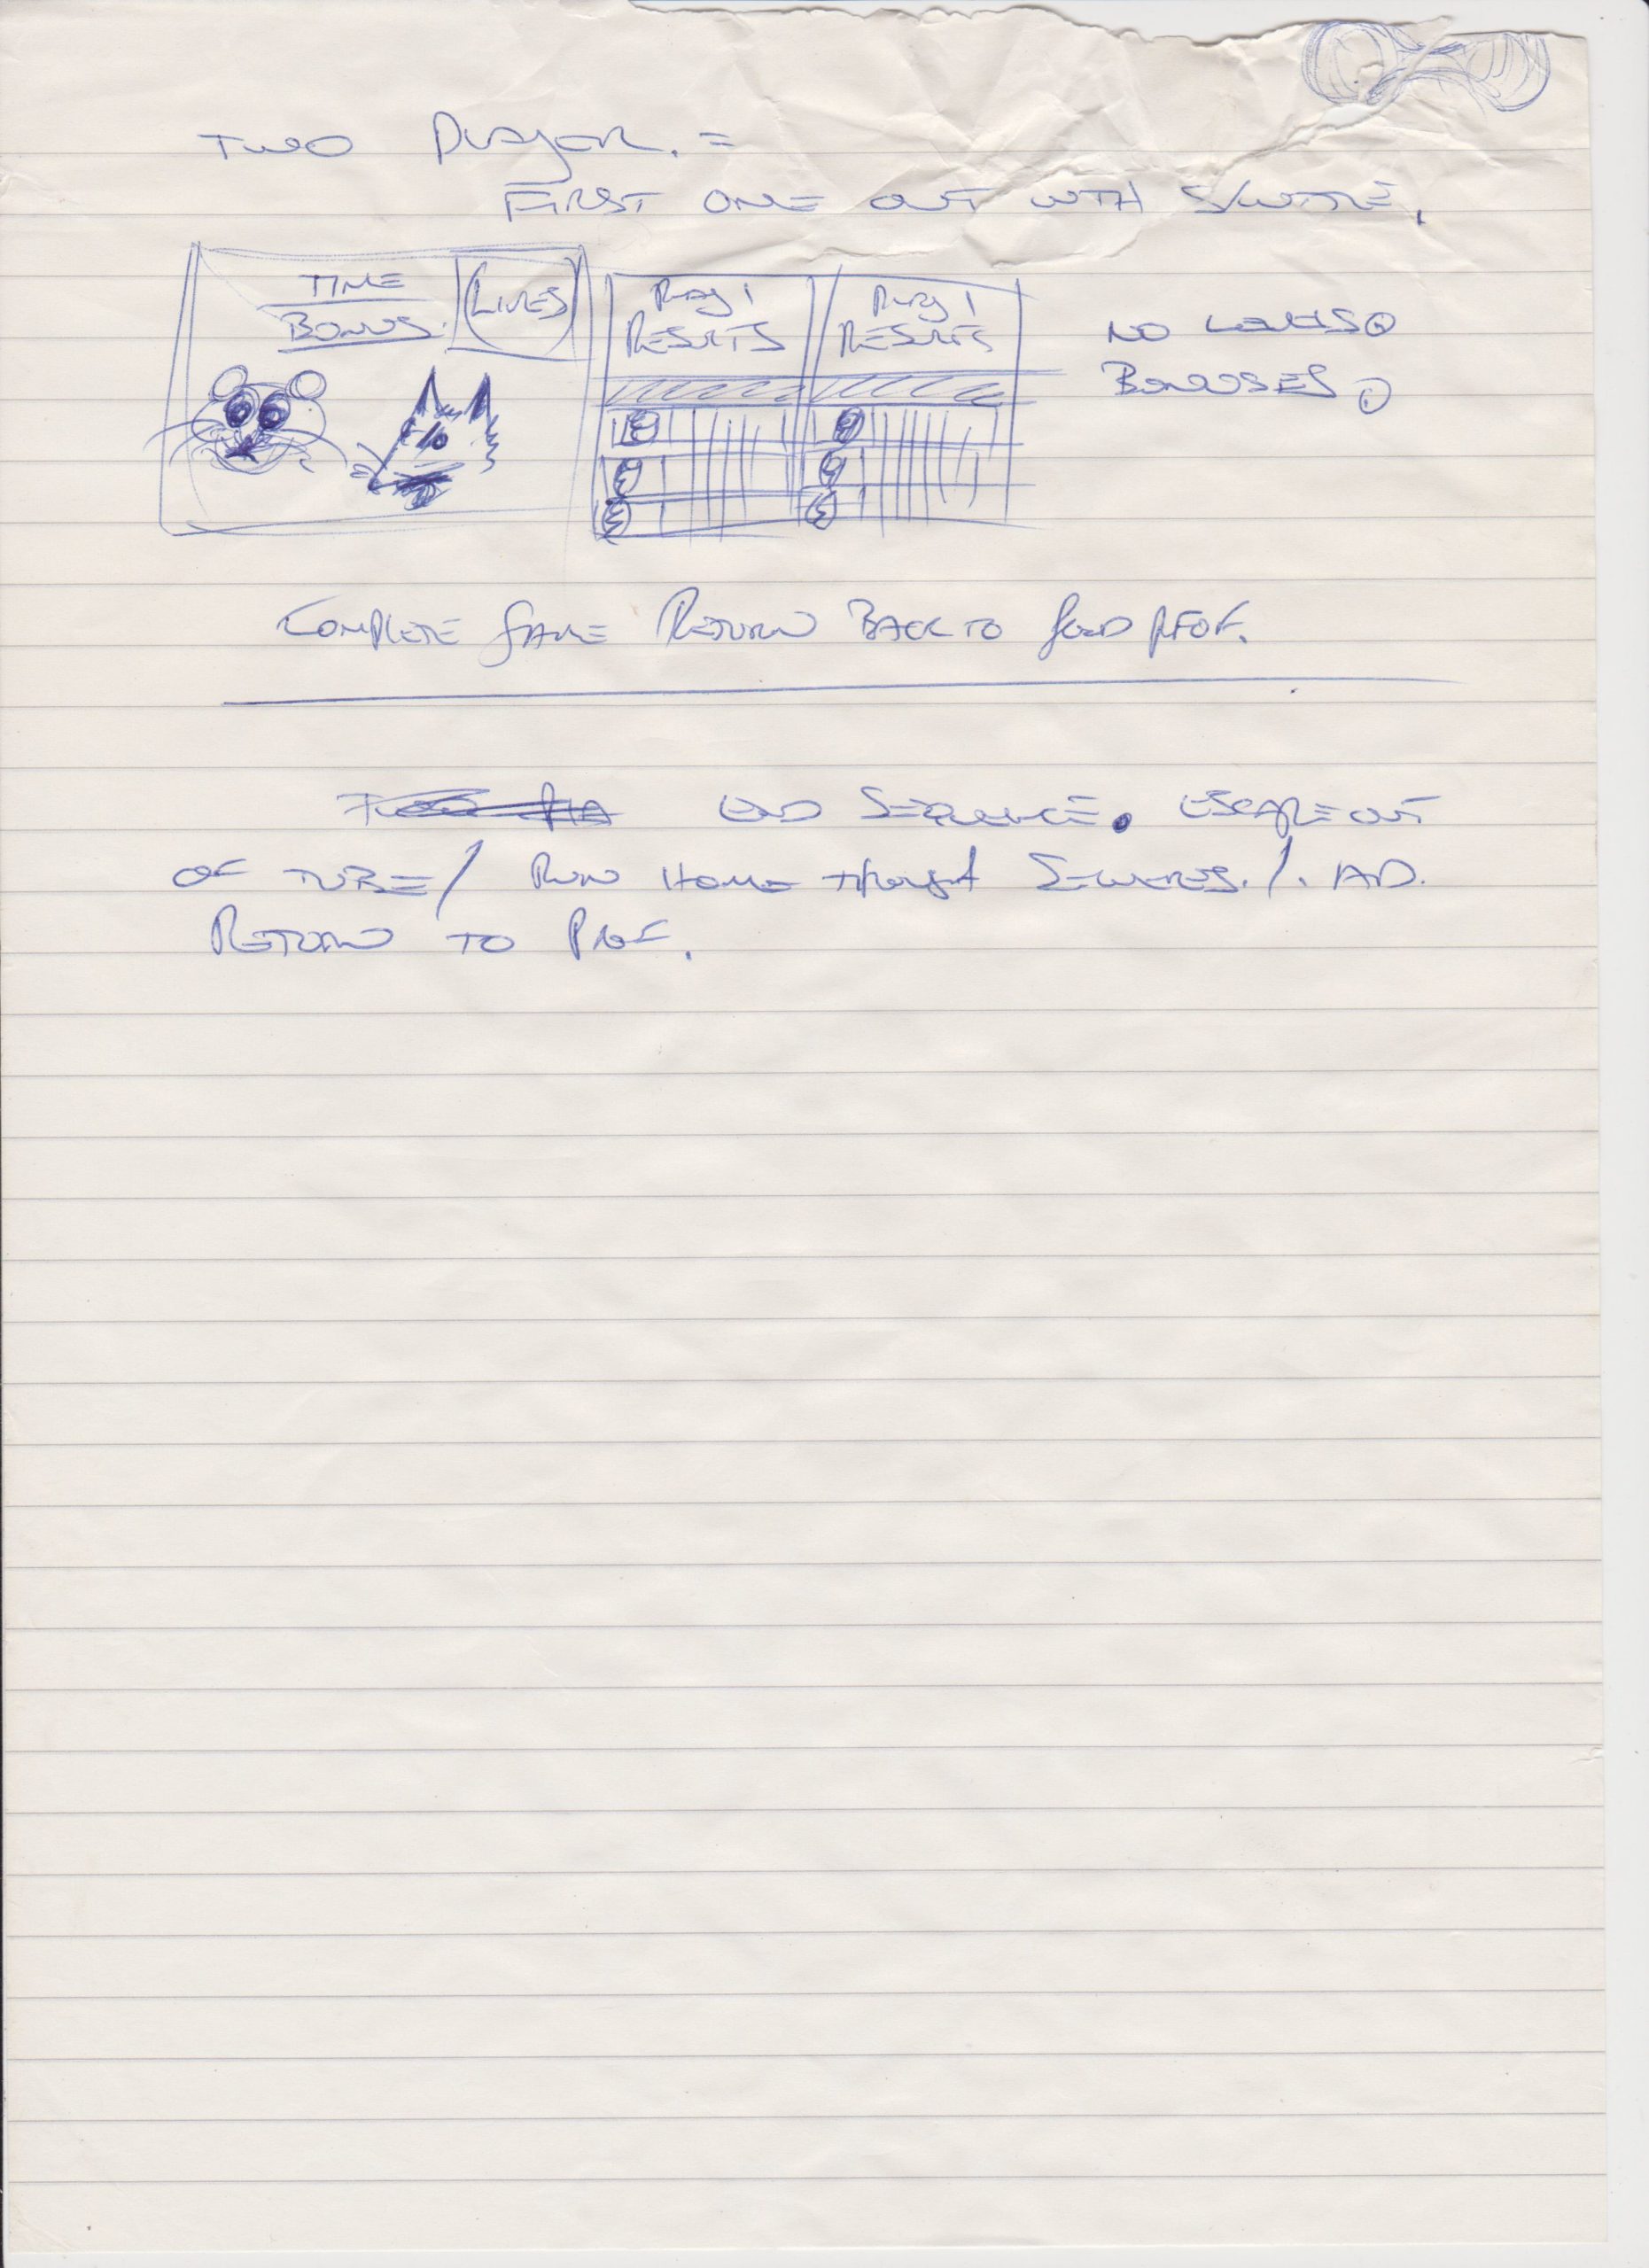 TWO PLAYER. =
FIRST ONE OUT WITH
TIME
BONUS.
(LIVES)
PLAY 1
RESULTS
PLAY 1
RESULTS
NO
BONUSES
COMPLETE GAME RETURN BACK TO GOOD PROF.
END SEQUENCE. ESCAPE OUT
OF TUBE / RUN HOME THROUGH SEWERES. /. AD.
RETURN TO PROF.